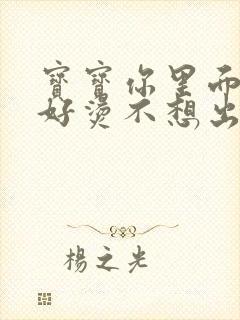 寶寶你里面
好燙不想出
楊之光